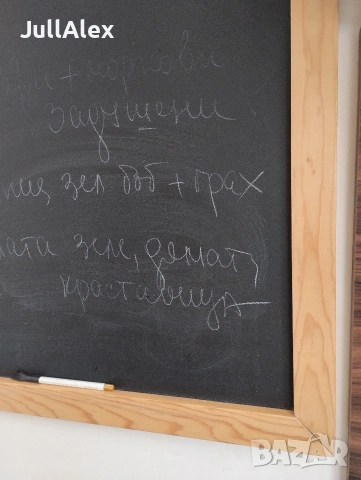 JullAlex
+ моркови
задушени
зел боб + грах
лата зеле, домати,
краставица
BAZAR